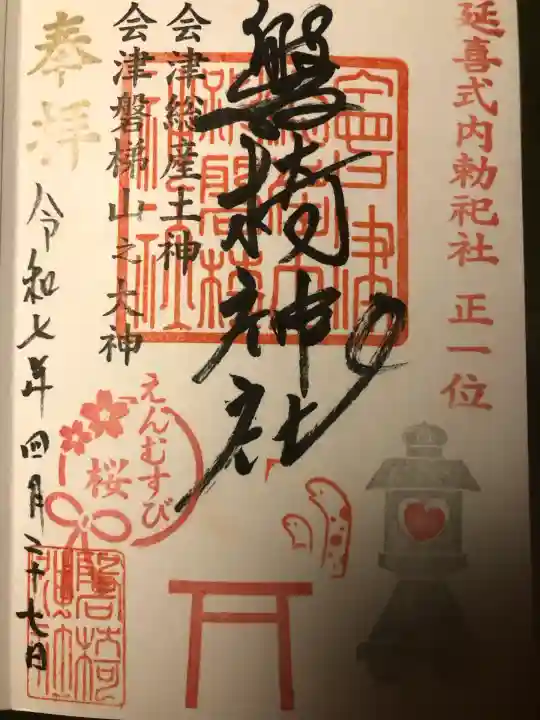 延喜式内勅祀社 正一位
磐椅神社
会津総産土神
会津磐梯山之大神
奉拝
令和七年四月二十七日
えんむすび
桜